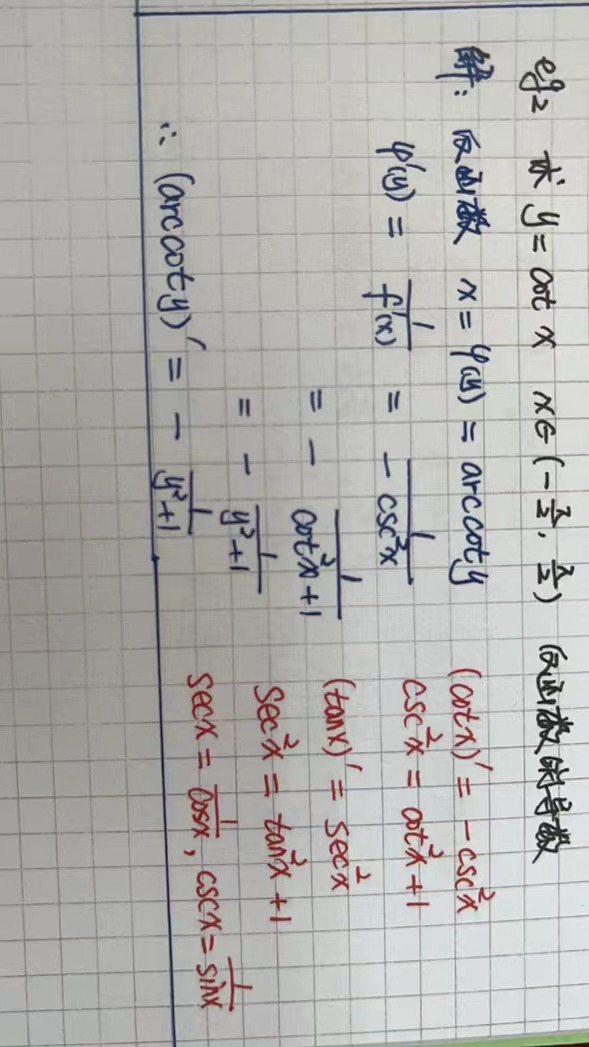 eg2 求 y = cot x x∈(-π/2, π/2) 反函数的导数
解: 反函数 x = φ(y) = arccot y
φ'(y) = 1/f'(x) = 1/(-csc²x)
= - 1/(cot²x+1)
= - 1/(y²+1)
∴ (arccot y)' = - 1/(y²+1).
(cot x)' = -csc²x
csc²x = cot²x+1
(tan x)' = sec²x
sec²x = tan²x +1
sec x = 1/cos x, csc x = 1/sin x